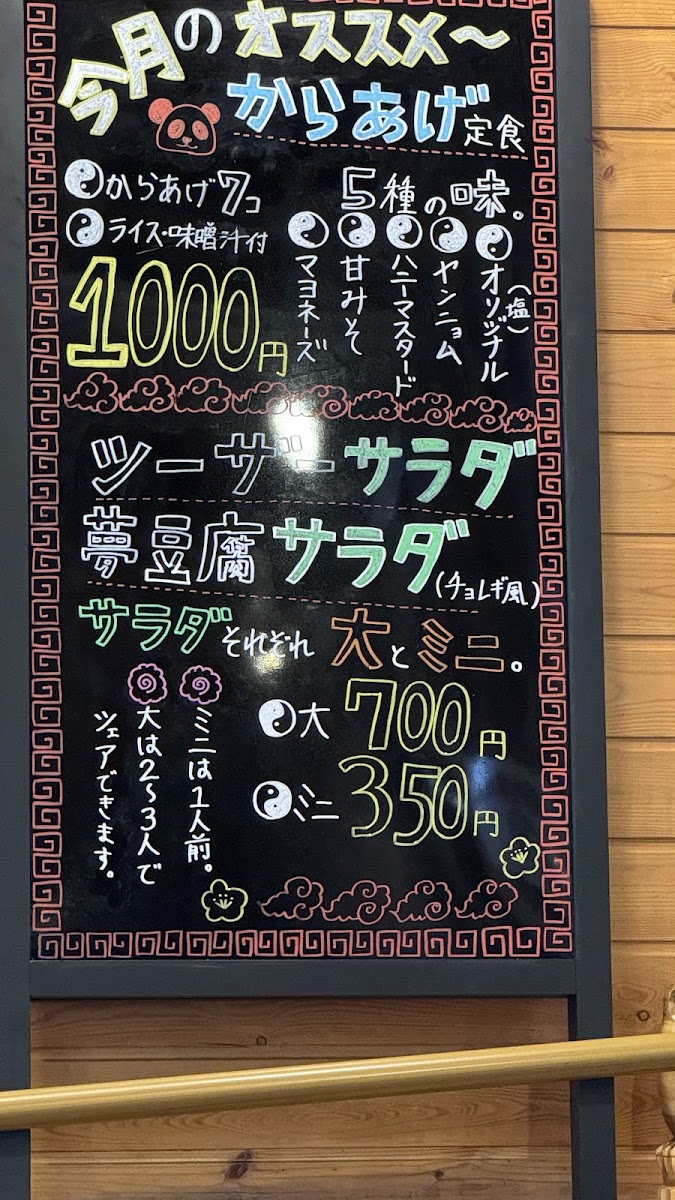 今月のオススメ～
からあげ定食
からあげ7コ
ライス・味噌汁付
1000円
5種の味。
オリジナル(塩)
ヤンニョム
ハニーマスタード
甘みそ
マヨネーズ
ツーザーサラダ
夢豆腐サラダ(チョレギ風)
サラダそれぞれ大とミニ。
大 700円
ミニ 350円
ミニは1人前。
大は2〜3人で
シェアできます。